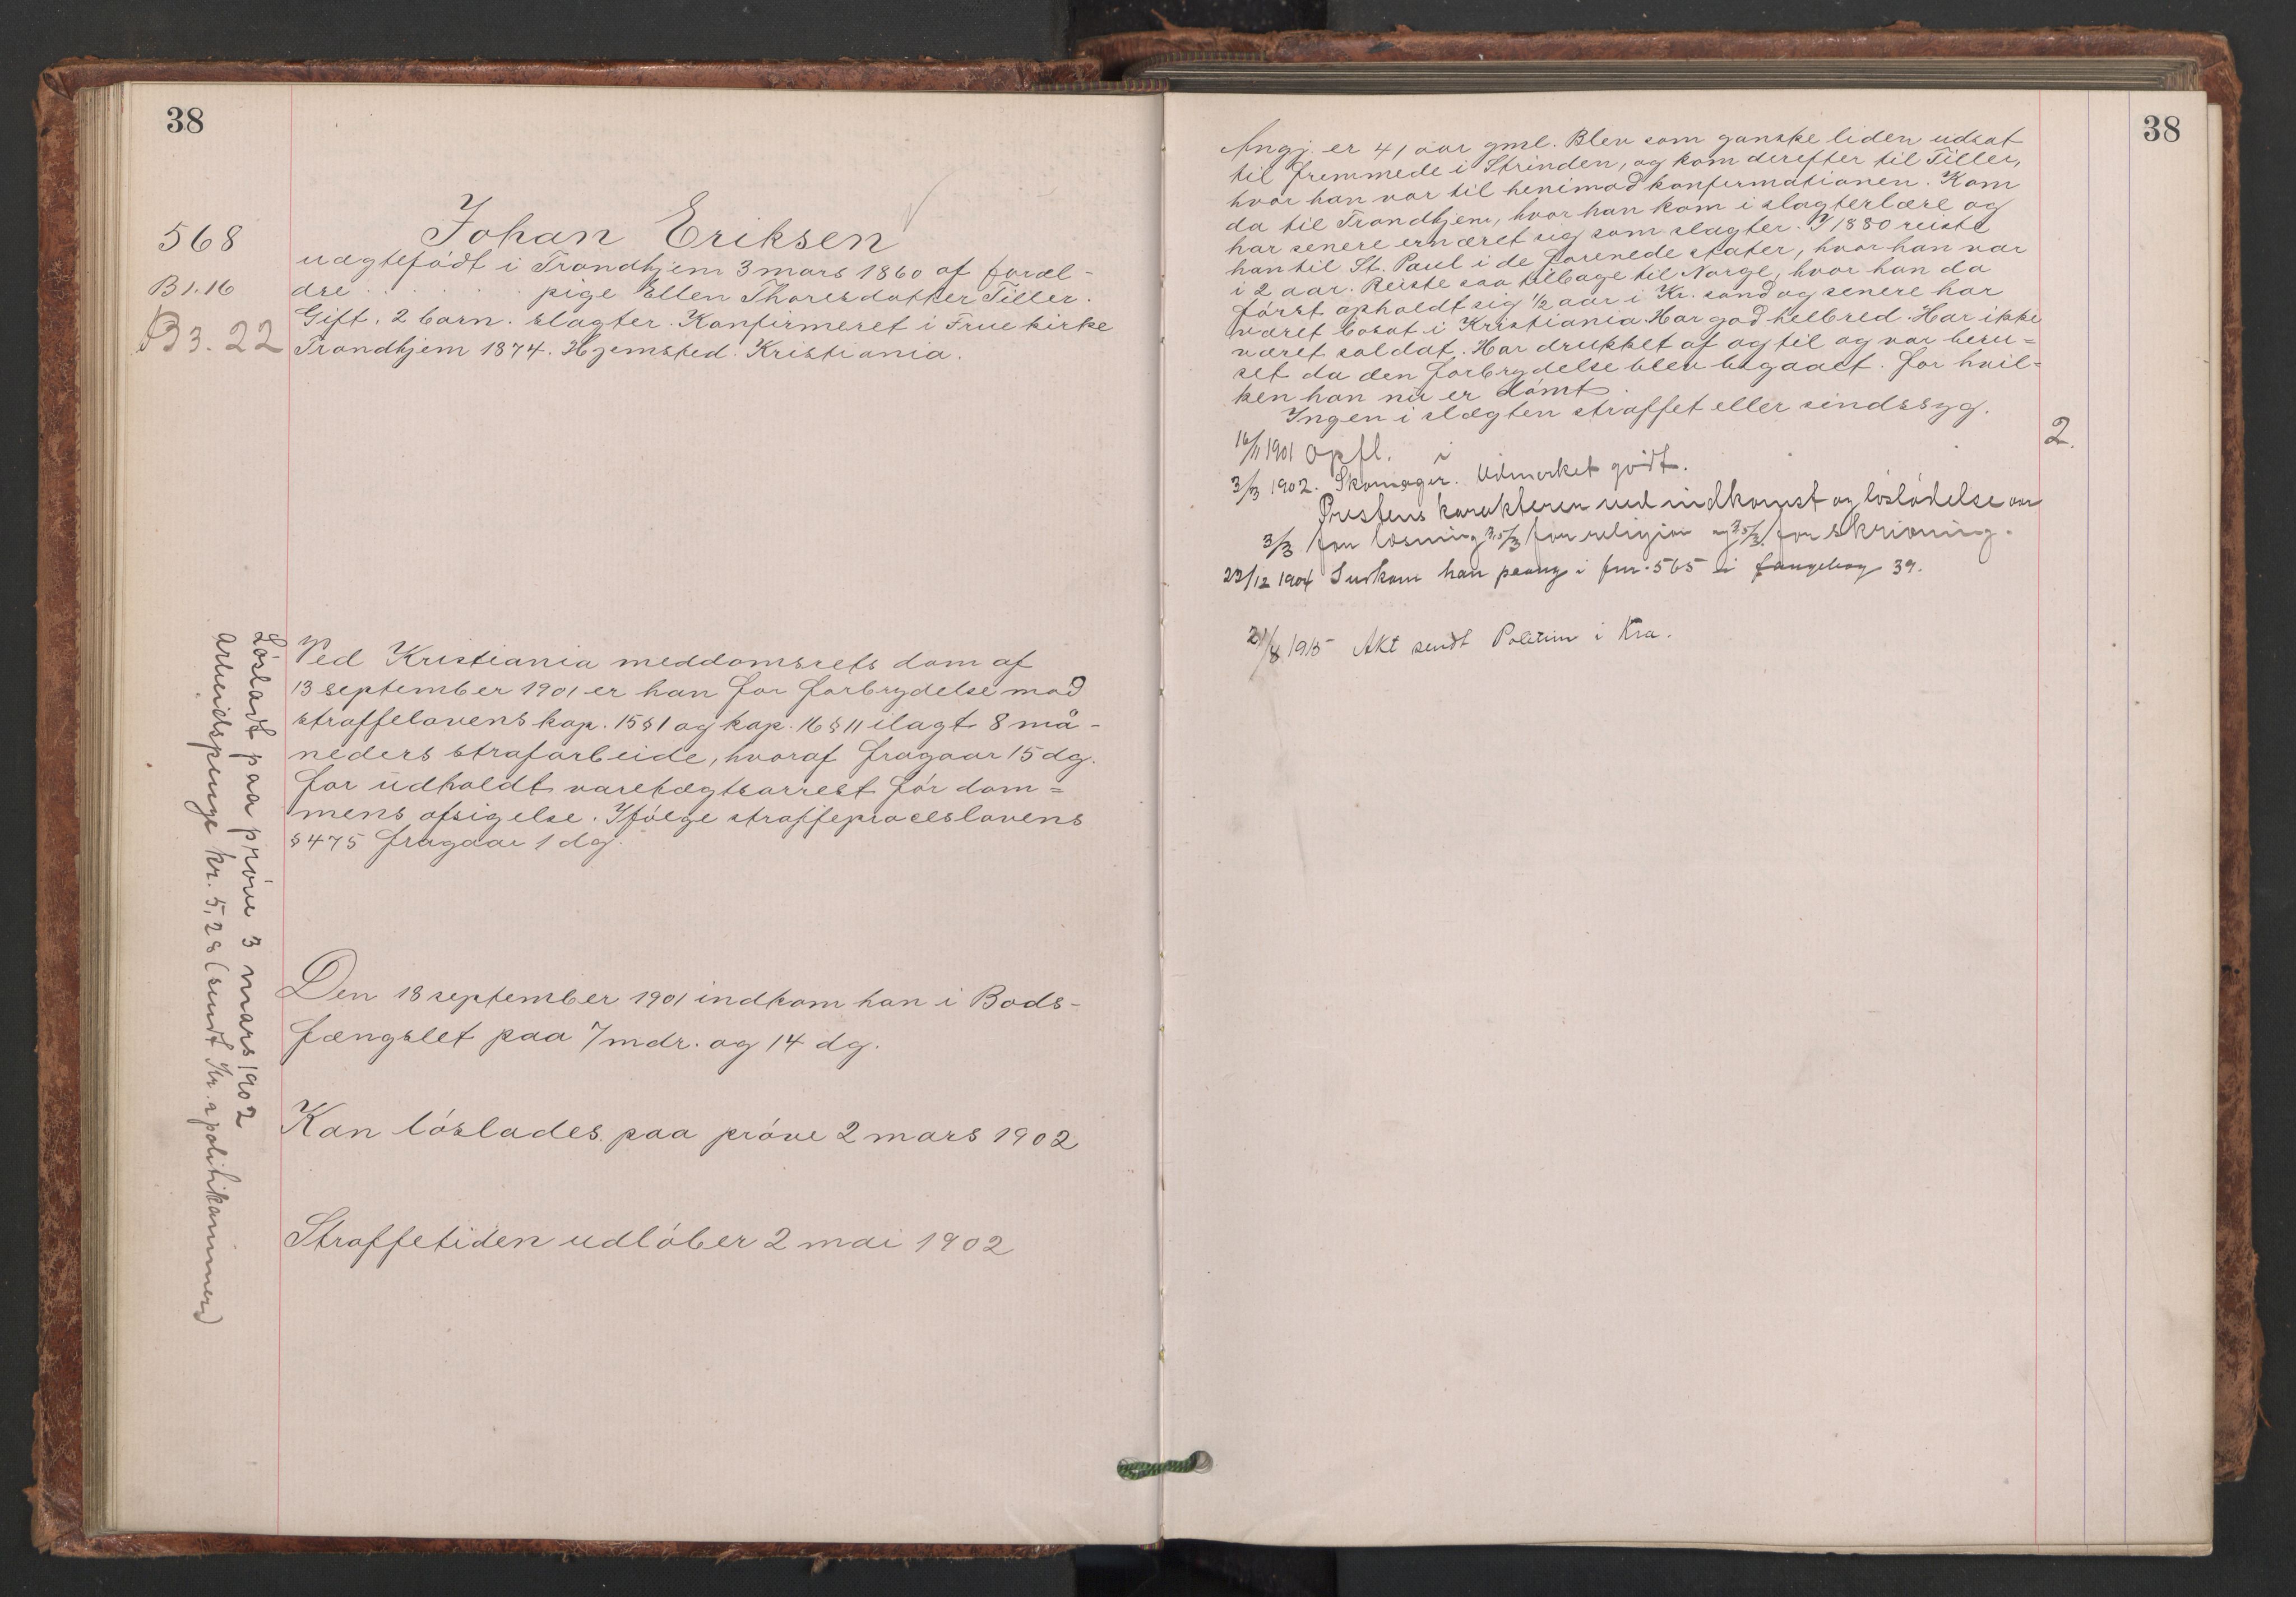 38
568
B1.16
B3.22
Johan Eriksen
uægtefödt i Trondhjem 3 mars 1860 af foræl-
dre . . . . . . pige Ellen Thoresdatter Tiller.
Gift. 2 barn. slagter. Konfirmeret i Frue kirke
Trondhjem 1874. Hjemsted. Kristiania.
Ved Kristiania meddomsrets dom af
13 september 1901 er han for forbrydelse mod
straffelovens kap. 15 § 1 og kap. 16 § 11 ilagt 8 må-
neders strafarbeide, hvoraf fragaar 15 dg.
for udholdt varetægtsarrest för dom=
mens afsigelse. Ifölge straffeproceslovens
§ 475 fragaar 1 dg.
Den 18 september 1901 indkom han i Bods-
fængslet paa 7 mdr. og 14 dg.
Kan löslades paa pröve 2 mars 1902
Straffetiden udlöber 2 mai 1902
Lösladt paa pröve 3 mars 1902
Arbeidspenge kr. 5,28 (sendt Kr.a politikammer)
38
Angj. er 41 aar gml. Blev som ganske liden udsat
til fremmede i Strinden, og kom derefter til Tiller,
hvor han var til henimod konfirmationen. Kom
da til Trondhjem, hvor han kom i slagterlære og
har senere ernæret sig som slagter. I 1880 reiste
han til St. Paul i de forenede stater, hvor han var
i 2 aar. Reiste saa tilbage til Norge, hvor han da
först opholdt sig 1/2 aar i Kr. sand og senere har
været bosat i Kristiania. Har god helbred. Har ikke
været soldat. Har drukket af og til og var beru=
set da den forbrydelse blev begaaet. for hvil-
ken han nu er dömt.
Ingen i slægten straffet eller sindssyg.
16/11 1901 opfl. i
2.
3/3 1902. Skomager. Udmerket godt.
Prestens karakterer ved indkomst og lösladelse var
3/3 for læsning 3,5/3 for religion og 3,5/3 for skrivning.
23/12 1904 Indkom han paany i fnr. 565 i fangebog 39.
21/8 1915 Akt sendt Politim i Kra.